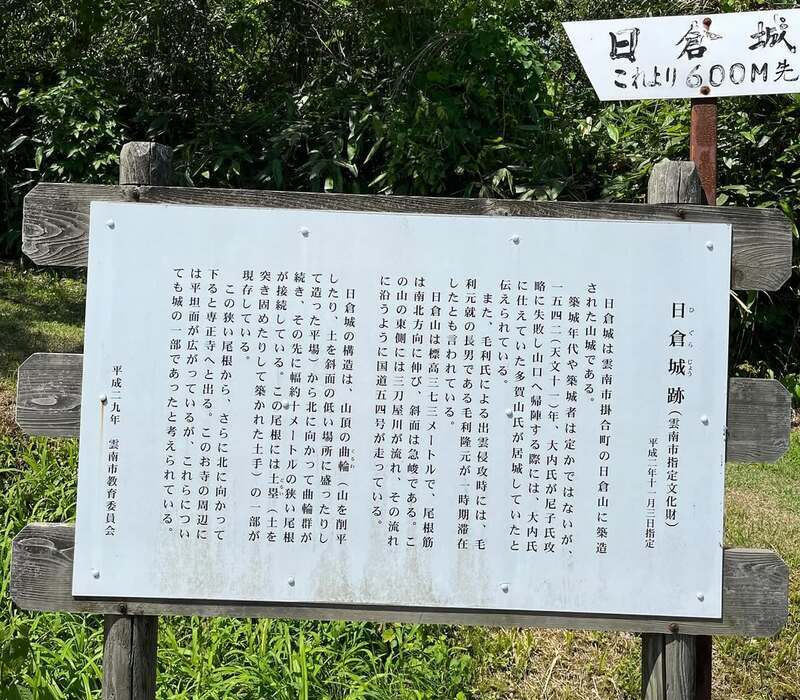 日倉城
これより600M先
日倉城跡(雲南市指定文化財)
ひぐらじょう
平成二年十一月三日指定
日倉城は雲南市掛合町の日倉山に築造
された山城である。
築城年代や築城者は定かではないが、
一五四二(天文十一)年、大内氏が尼子氏攻
略に失敗し山口へ帰陣する際には、大内氏
に仕えていた多賀山氏が居城していたと
伝えられている。
また、毛利氏による出雲侵攻時には、毛
利元就の長男である毛利隆元が一時期滞在
したとも言われている。
日倉山は標高三七三メートルで、尾根筋
は南北方向に伸び、斜面は急峻である。こ
の山の東側には三刀屋川が流れ、その流れ
に沿うように国道五四号が走っている。
日倉城の構造は、山頂の曲輪(山を削平
くるわ
したり、土を斜面の低い場所に盛ったりし
て造った平場)から北に向かって曲輪群が
続き、その先に幅約十メートルの狭い尾根
が接続している。この尾根には土塁(土を
どるい
突き固めたりして築かれた土手)の一部が
現存している。
この狭い尾根から、さらに北に向かって
下ると専正寺へと出る。このお寺の周辺に
は平坦面が広がっているが、これらについ
ても城の一部であったと考えられている。
平成二九年 雲南市教育委員会